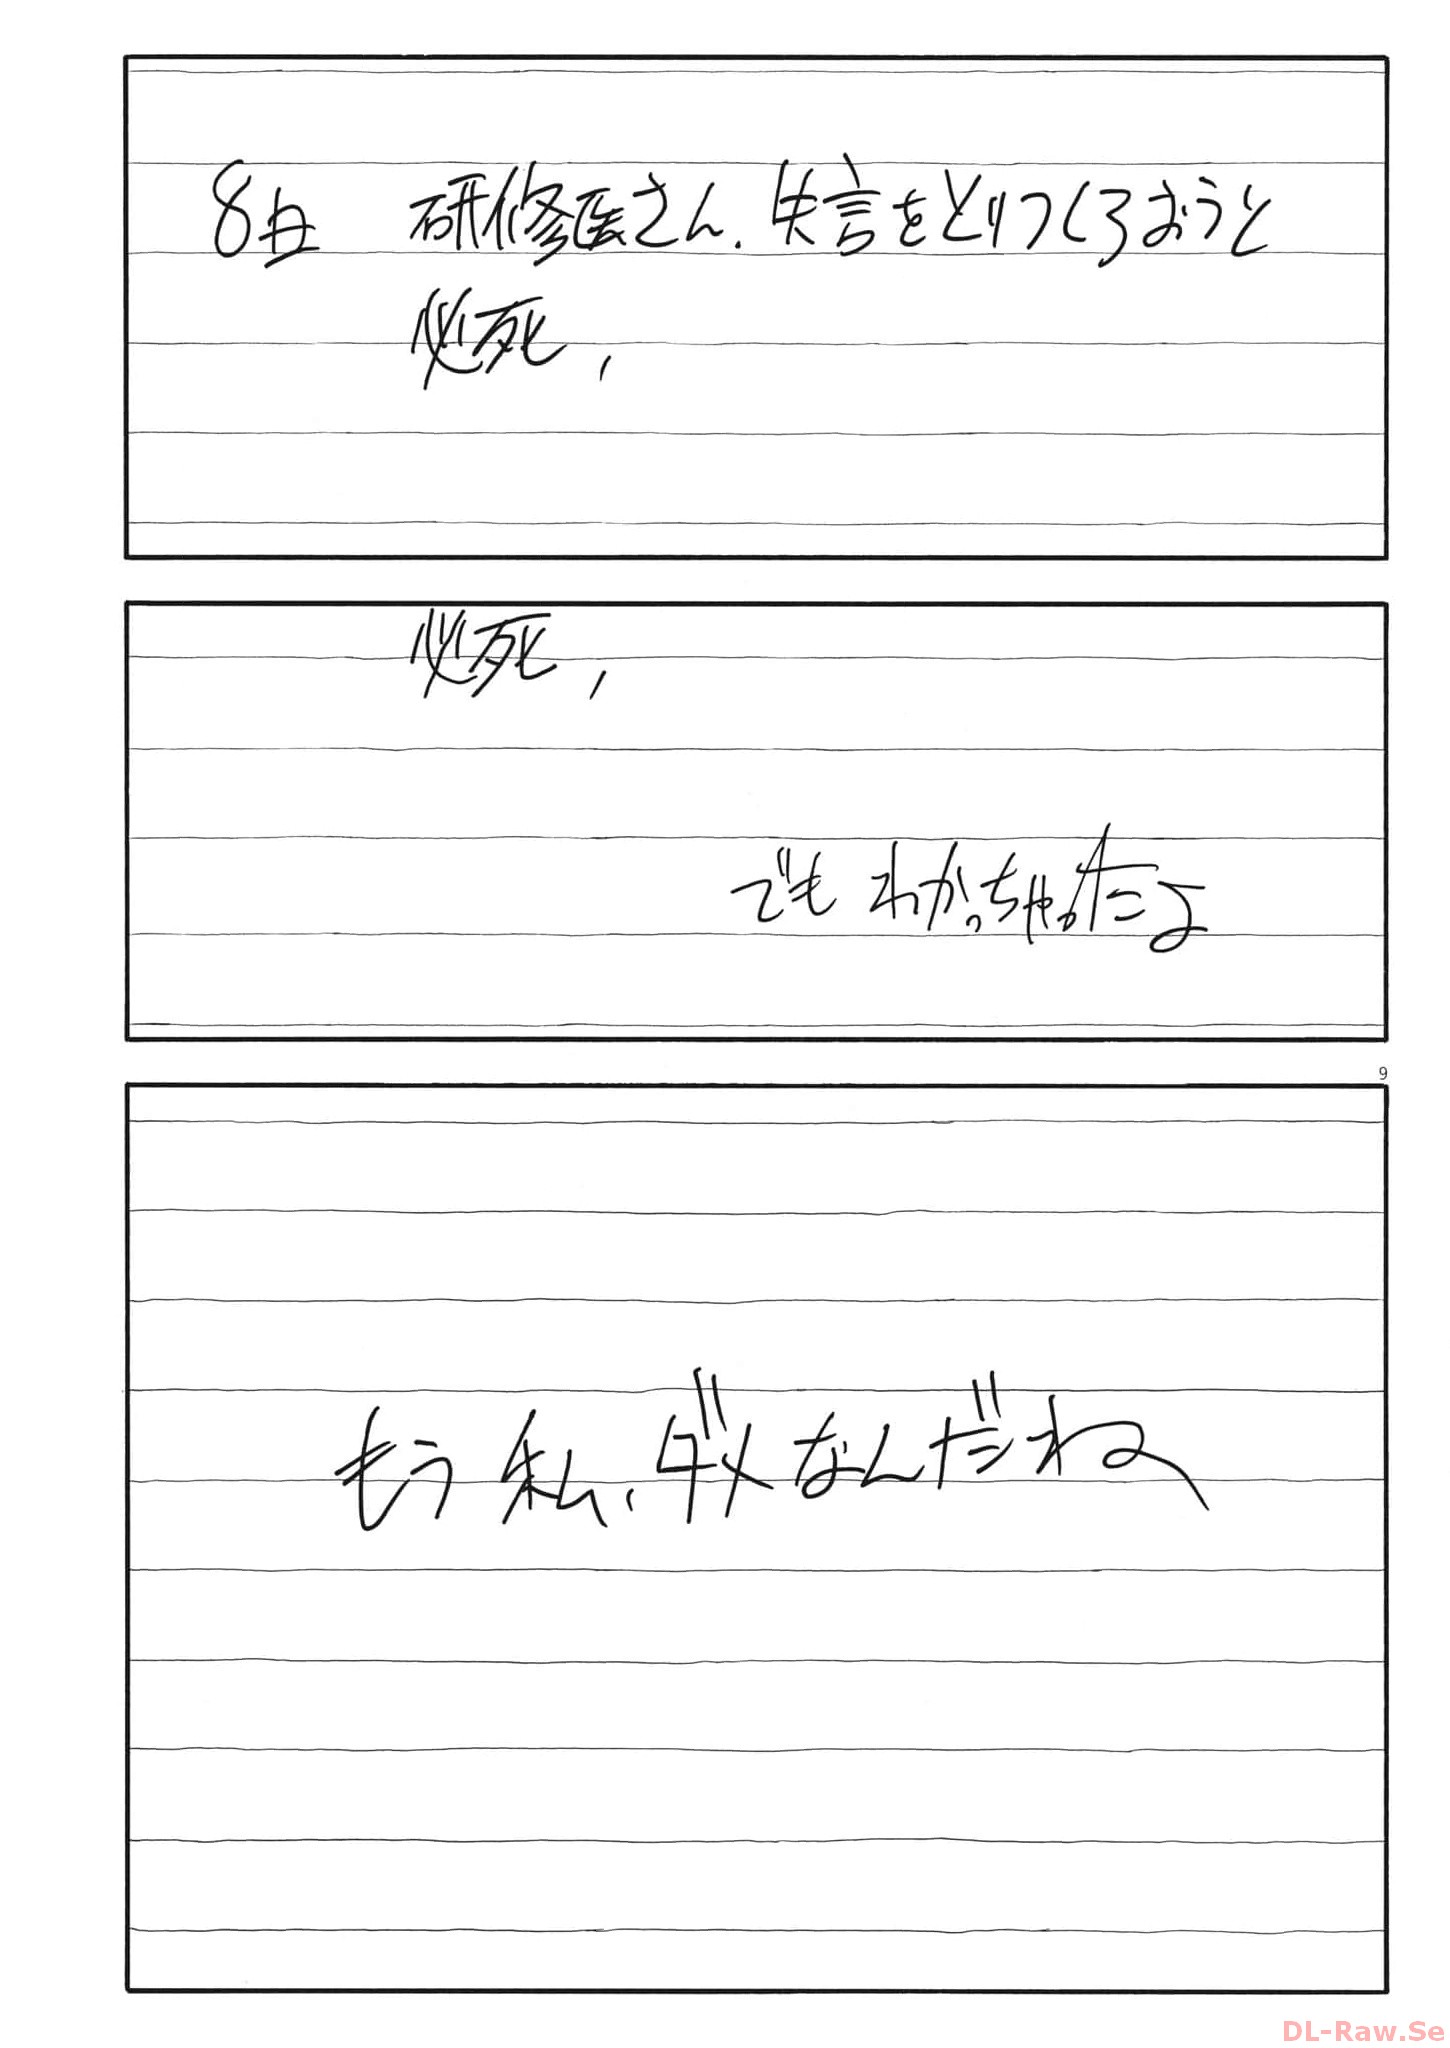 8日 研修医さん、失言をとりつくろおうと
必死、
必死、
でも わかっちゃったよ
9
もう 私、ダメなんだね
DL-Raw.Se